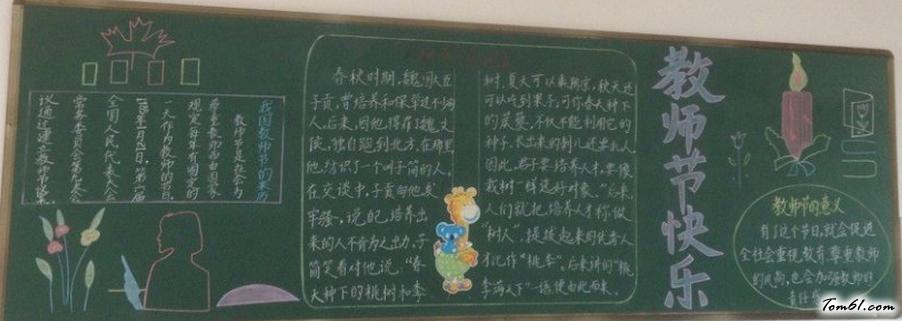 我国教师节的来历
教师节是在
尊重教师的国家
规定每年有固定的
一天作为教师的节日
全国人民代表大会
常务委员会第九次会
议通过
春秋时期，魏国大臣
子贡，曾培养和保举过不少
人。后来，因他得罪了魏文
侯，独自跑到北方。在那里
他结识了一个叫子简的人。
在交谈中，子贡向他发
牢骚，说自己培养出
来的人不肯为己出力。子
简笑着对他说：“春
天种下的桃树和李
树，夏天可以乘凉，秋天还
可以吃到果子；可你春天种下
的，不仅不能利用它的
种子，长出来的刺儿还
因此，君子要培养人才，要像
栽树一样选好对象。”后来，
人们就把培养人才称做
“树人”，提拔起来的优秀人
才比作“桃李”，后来讲的“桃
李满天下”一语便由此而来。
教师节快乐
教师节的意义
有了这个节日，就会促进
全社会重视教育，尊重教师
的风尚，也会加强教师的
责任
Tom61.com